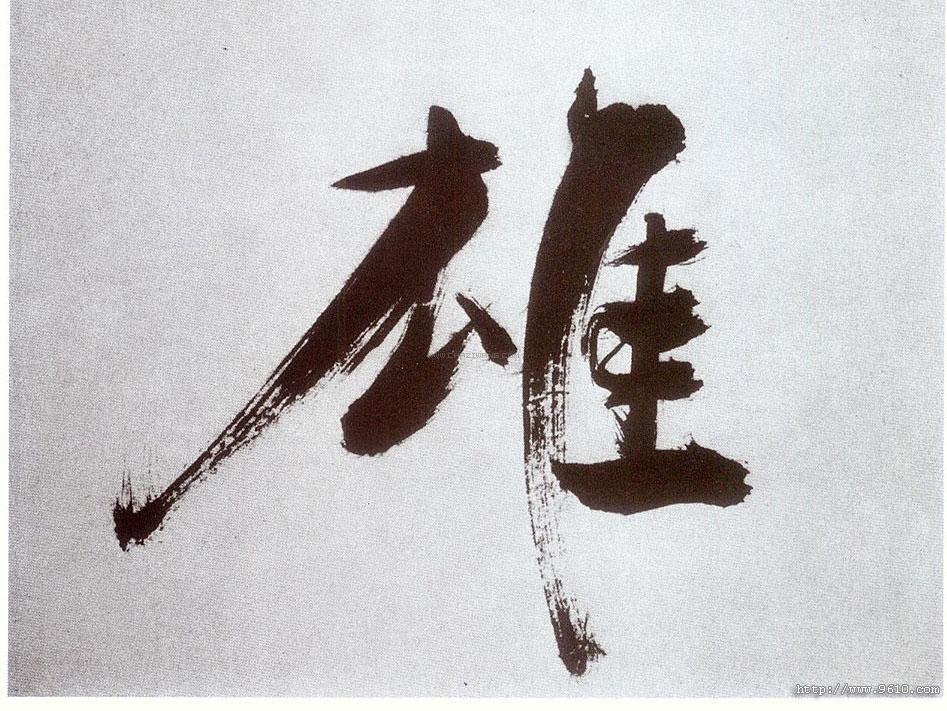 雄
http://www.9610.com